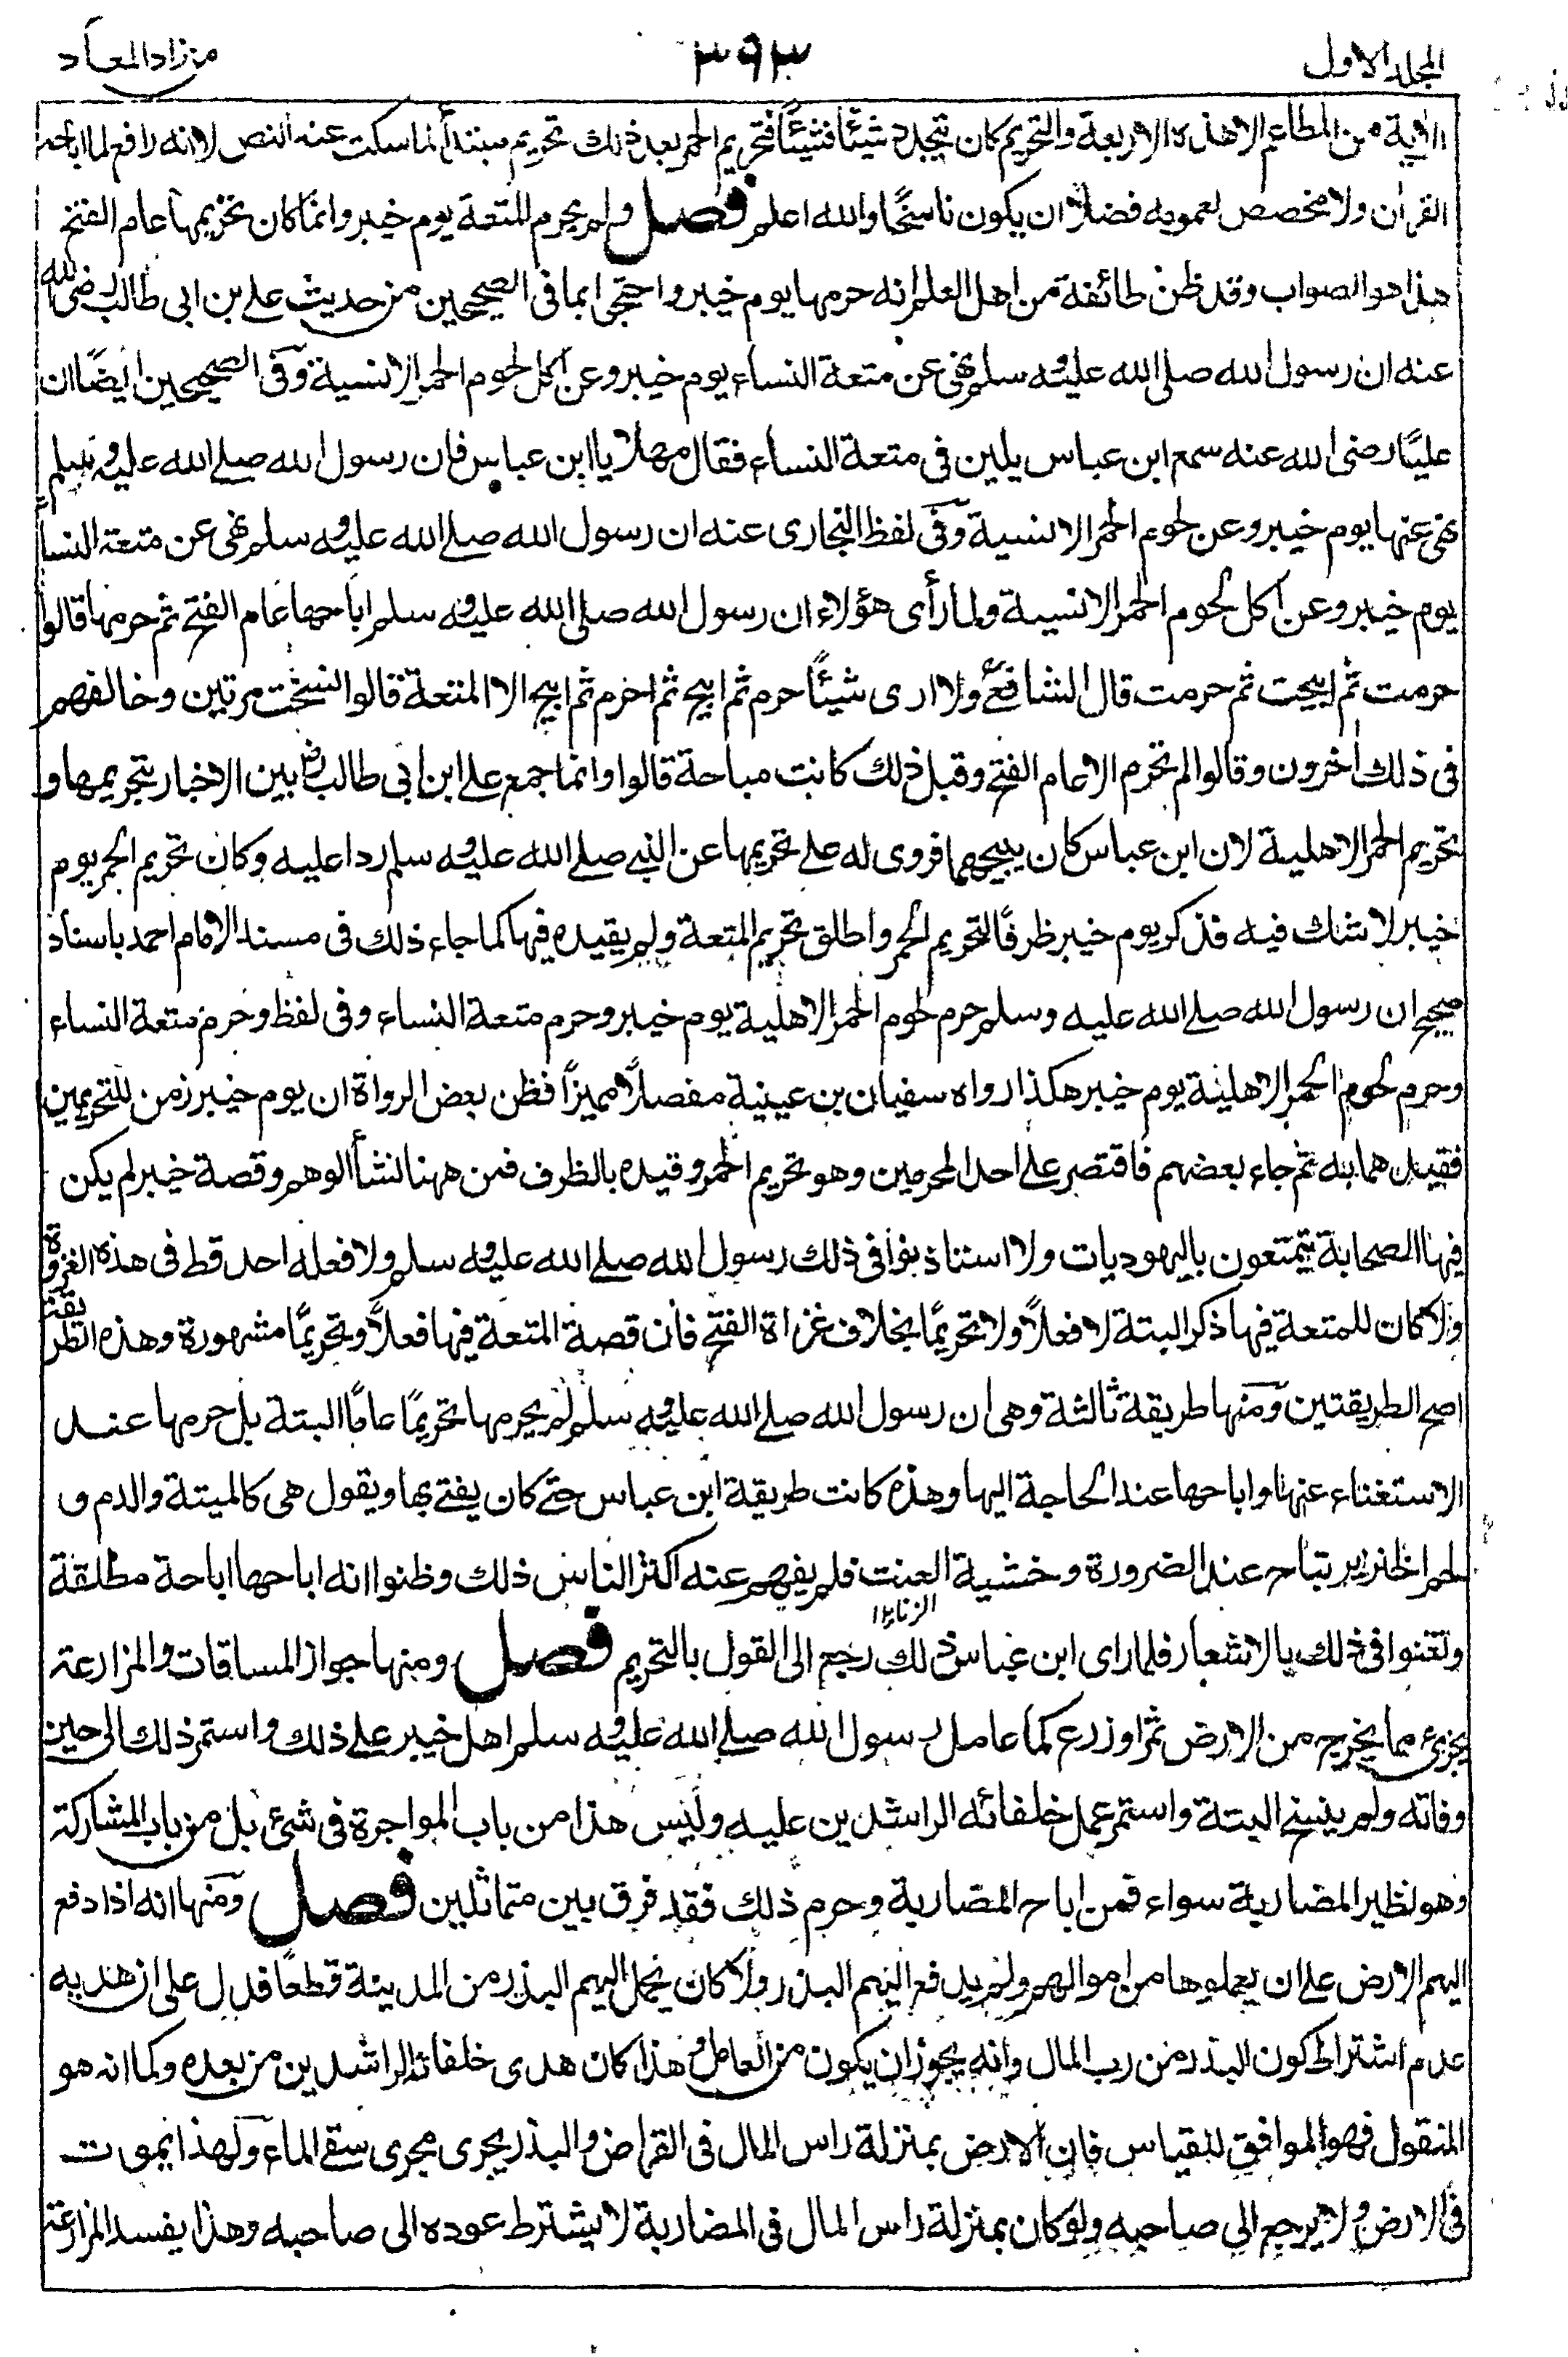 المجلد الاول
٣٩٣
من زاد المعاد
الاٰية من المطاعم الا هذه الاربعة والتحريم كان يتجدد شيئًا فشيئًا فتحريم الحمر بعد ذلك تحريم مبتدأ لما سكت عنه النص لا انه رافع لما اباحه
القراٰن ولا مخصص لعمومه فضلا ان يكون ناسخًا والله اعلم فصل ولم يحرم المتعة يوم خيبر وانما كان تحريمها عام الفتح
هذا هو الصواب وقد ظن طائفة من اهل العلم انه حرمها يوم خيبر واحتجوا بما فى الصحيحين من حديث علے بن ابى طالب رضى الله
عنه ان رسول الله صلے الله عليه وسلم نهى عن متعة النساء يوم خيبر وعن اكل لحوم الحمر الانسية وفى الصحيحين ايضًا ان
عليًا رضى الله عنه سمع ابن عباس يلين فى متعة النساء فقال مهلا يا ابن عباس فان رسول الله صلے الله عليه وسلم
نهى عنها يوم خيبر وعن لحوم الحمر الانسية وفى لفظ البخارى عنه ان رسول الله صلے الله عليه وسلم نهى عن متعة النساء
يوم خيبر وعن اكل لحوم الحمر الانسية ولما رأى هؤلاء ان رسول الله صلى الله عليه وسلم اباحها عام الفتح ثم حرمها قالوا
حرمت ثم ابيحت ثم حرمت قال الشافعى ولا ارى شيئًا حرم ثم ابيح ثم احرم ثم ابيح الا المتعة قالوا نسخت مرتين وخالفهم
فى ذلك اٰخرون وقالوا لم تحرم الا عام الفتح وقبل ذلك كانت مباحة قالوا وانما جمع على ابن ابى طالب رض بين الاخبار بتحريمها و
تحريم الحمر الاهلية لان ابن عباس كان يبيحهما فروى له علے تحريمها عن النبى صلے الله عليه وسلم ردا عليه وكان تحريم الحمر يوم
خيبر لا شك فيه فذكر يوم خيبر ظرفًا لتحريم الحمر واطلق تحريم المتعة ولم يقيده فيها كما جاء ذلك فى مسند الامام احمد باسناد
صحيح ان رسول الله صلے الله عليه وسلم حرم لحوم الحمر الاهلية يوم خيبر وحرم متعة النساء وفى لفظ وحرم متعة النساء
وحرم لحوم الحمر الاهلية يوم خيبر هكذا رواه سفيان بن عيينة مفصلًا مميزًا فظن بعض الرواة ان يوم خيبر زمن للتحريمين
فقيد هما به ثم جاء بعضهم فاقتصر علے احد المحرمين وهو تحريم الحمر وقيده بالظرف فمن ههنا نشأ الوهم وقصة خيبر لم يكن
فيها الصحابة يتمتعون باليهوديات ولا استاذنوا فى ذلك رسول الله صلے الله عليه وسلم ولا فعله احد قط فى هذه الغزوة
ولا كان للمتعة فيها ذكر البتة لا فعلًا ولا تحريمًا بخلاف غزاة الفتح فان قصة المتعة فيها فعلًا وتحريمًا مشهورة وهذه الطريقة
اصح الطريقتين ومنها طريقة ثالثة وهى ان رسول الله صلے الله عليه وسلم لم يحرمها تحريمًا عامًا البتة بل حرمها عند
الاستغناء عنها واباحها عند الحاجة اليها وهذه كانت طريقة ابن عباس حتے كان يفتى بها ويقول هى كالميتة والدم و
لحم الخنزير تباح عند الضرورة وخشية العنت فلم يفهم عنه اكثر الناس ذلك وظنوا انه اباحها اباحة مطلقة
وتغنوا فى ذلك بالاشعار فلما راى ابن عباس ذلك رجع الى القول بالتحريم فصل ومنها جواز المساقات والمزارعة
بجزء مما يخرج من الارض ثمر او زرع كما عامل رسول الله صلے الله عليه وسلم اهل خيبر على ذلك واستمر ذلك الى حين
وفاته ولم ينسخ البتة واستمر عمل خلفائه الراشدين عليه وليس هذا من باب المواجرة فى شئ بل من باب المشاركة
وهو نظير المضاربة سواء فمن اباح المضاربة وحرم ذلك فقد فرق بين متماثلين فصل ومنها انه اذا دفع
اليهم الارض علے ان يعملوها من اموالهم ولم يدفع اليهم البذر ولا كان يحمل اليهم البذر من المدينة قطعًا فدل على ان هديه
عدم اشتراط كون البذر من رب المال وانه يجوز ان يكون من العامل وهذا كان هدى خلفائه الراشدين من بعده وكما انه هو
المنقول فهو الموافق للقياس فان الارض بمنزلة راس المال فى القراض والبذر يجرى مجرى سقے الماء ولهذا يموت
فى الارض ولا يرجع الى صاحبه ولو كان بمنزلة راس المال فى المضاربة لا يشترط عوده الى صاحبه وهذا يفسد المزارعة